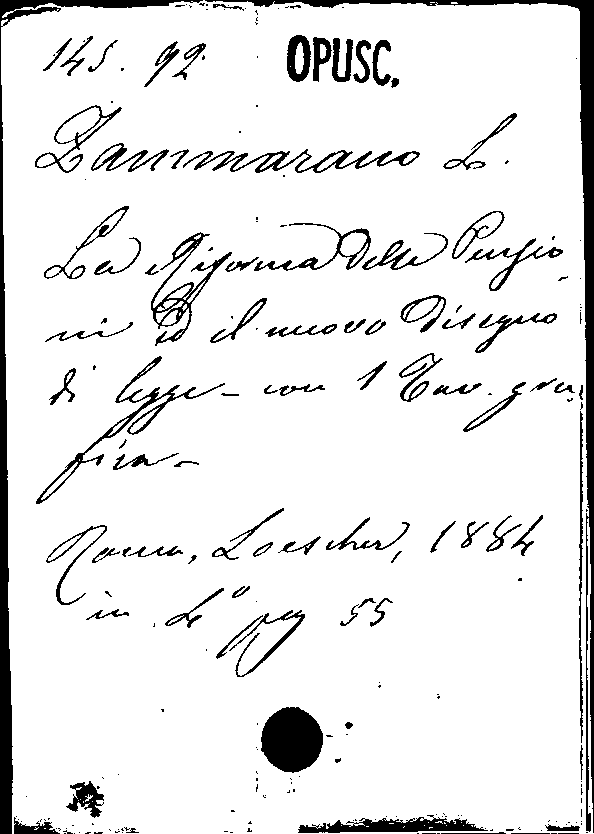 145. 92 OPUSC.
Zammarano L.
La Riforma delle Pensio-
ni ed il nuovo Disegno
di legge - con 1 Tav. gra-
fica -
Roma, Loescher, 1884
in 4° pag 55